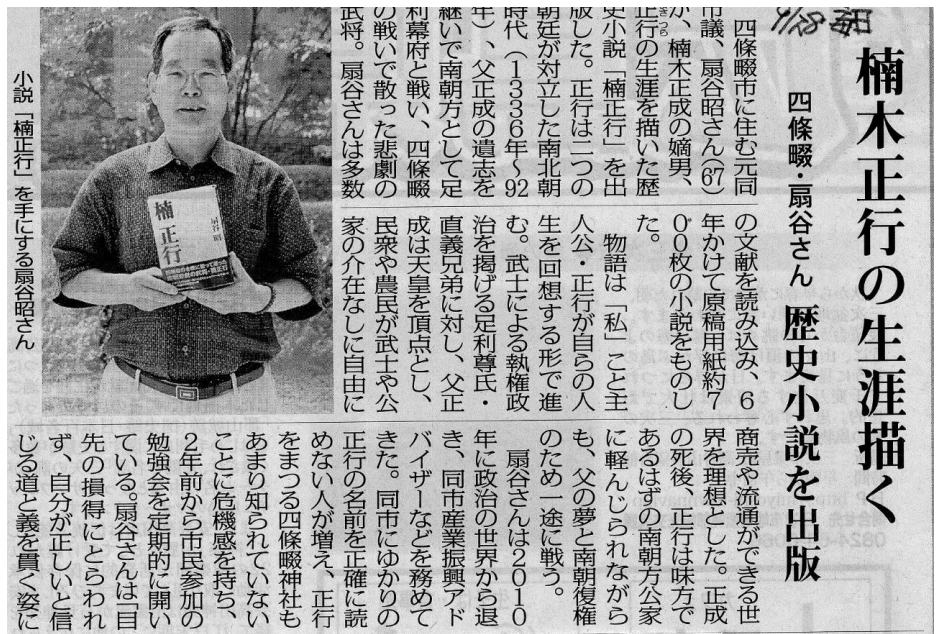 4/28 毎日
楠木正行の生涯描く
四條畷・扇谷さん 歴史小説を出版
四條畷市に住む元同
市議、扇谷昭さん(67)
が、楠木正成の嫡男、
正行の生涯を描いた歴
史小説「楠正行」を出
版した。正行は二つの
朝廷が対立した南北朝
時代(1336年～92
年)、父正成の遺志を
継いで南朝方として足
利幕府と戦い、四條畷
の戦いで散った悲劇の
武将。扇谷さんは多数
の文献を読み込み、6
年かけて原稿用紙約7
00枚の小説をものし
た。
物語は「私」こと主
人公・正行が自らの人
生を回想する形で進
む。武士による執権政
治を掲げる足利尊氏・
直義兄弟に対し、父正
成は天皇を頂点とし、
民衆や農民が武士や公
家の介在なしに自由に
商売や流通ができる世
界を理想とした。正成
の死後、正行は味方で
あるはずの南朝方公家
に軽んじられながら
も、父の夢と南朝復権
のため一途に戦う。
扇谷さんは2010
年に政治の世界から退
き、同市産業振興アド
バイザーなどを務めて
きた。同市にゆかりの
正行の名前を正確に読
めない人が増え、正行
をまつる四條畷神社も
あまり知られていない
ことに危機感を持ち、
2年前から市民参加の
勉強会を定期的に開い
ている。扇谷さんは「目
先の損得にとらわれ
ず、自分が正しいと信
じる道と義を貫く姿に
扇谷 昭
楠 正行
小説「楠正行」を手にする扇谷昭さん